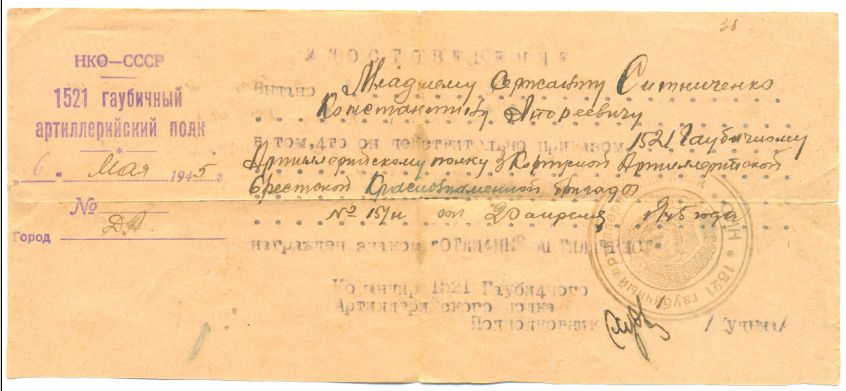 38
УДОСТОВЕРЕНИЕ
НКО—СССР
1521 гаубичный
артиллерийский полк
„ 6 „ Мая 1945 г
№
ДА
Город
Выдано Младшему Сержанту Ситниченко
Константину Андреевичу
в том, что он действительно приказом 1521 Гаубичному
Артиллерийскому полку 3 Корпусной Артиллерийской
Брестской Краснознаменной бригады
№ 15/н от 20 апреля 1945 года
награжден знаком "ОТЛИЧНЫЙ АРТИЛЛЕРИСТ"
Командир 1521 Гаубичного
Артиллерийского полка
Подполковник
НКО * 1521 гаубичный артиллерий